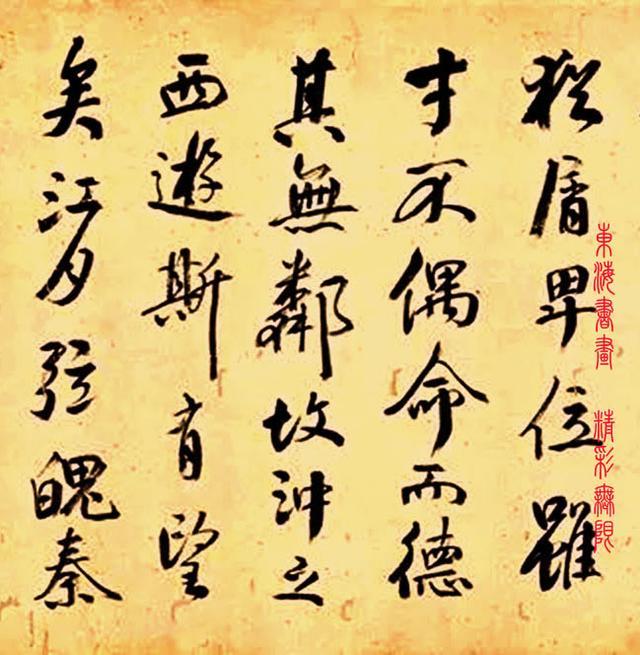 猶屑卑位雖
才不偶命而德
其無鄰故沖之
西遊斯有望
矣江夕弦魄秦
東海書畫 精彩無限